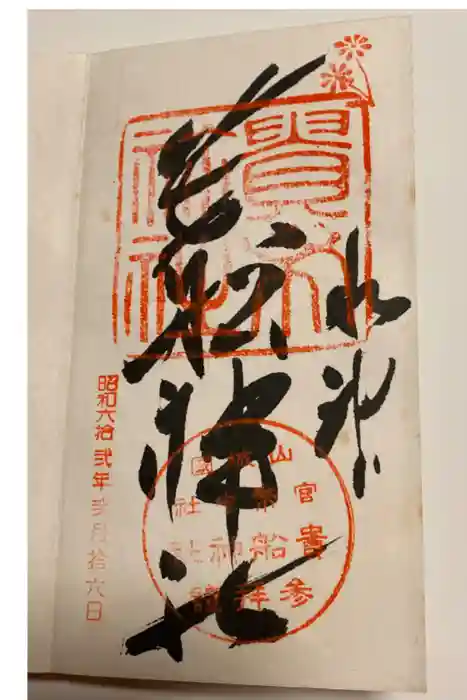 水神
貴船神社
山城國
官幣中社
貴船神社
参拝證
昭和六拾弐年弐月拾六日